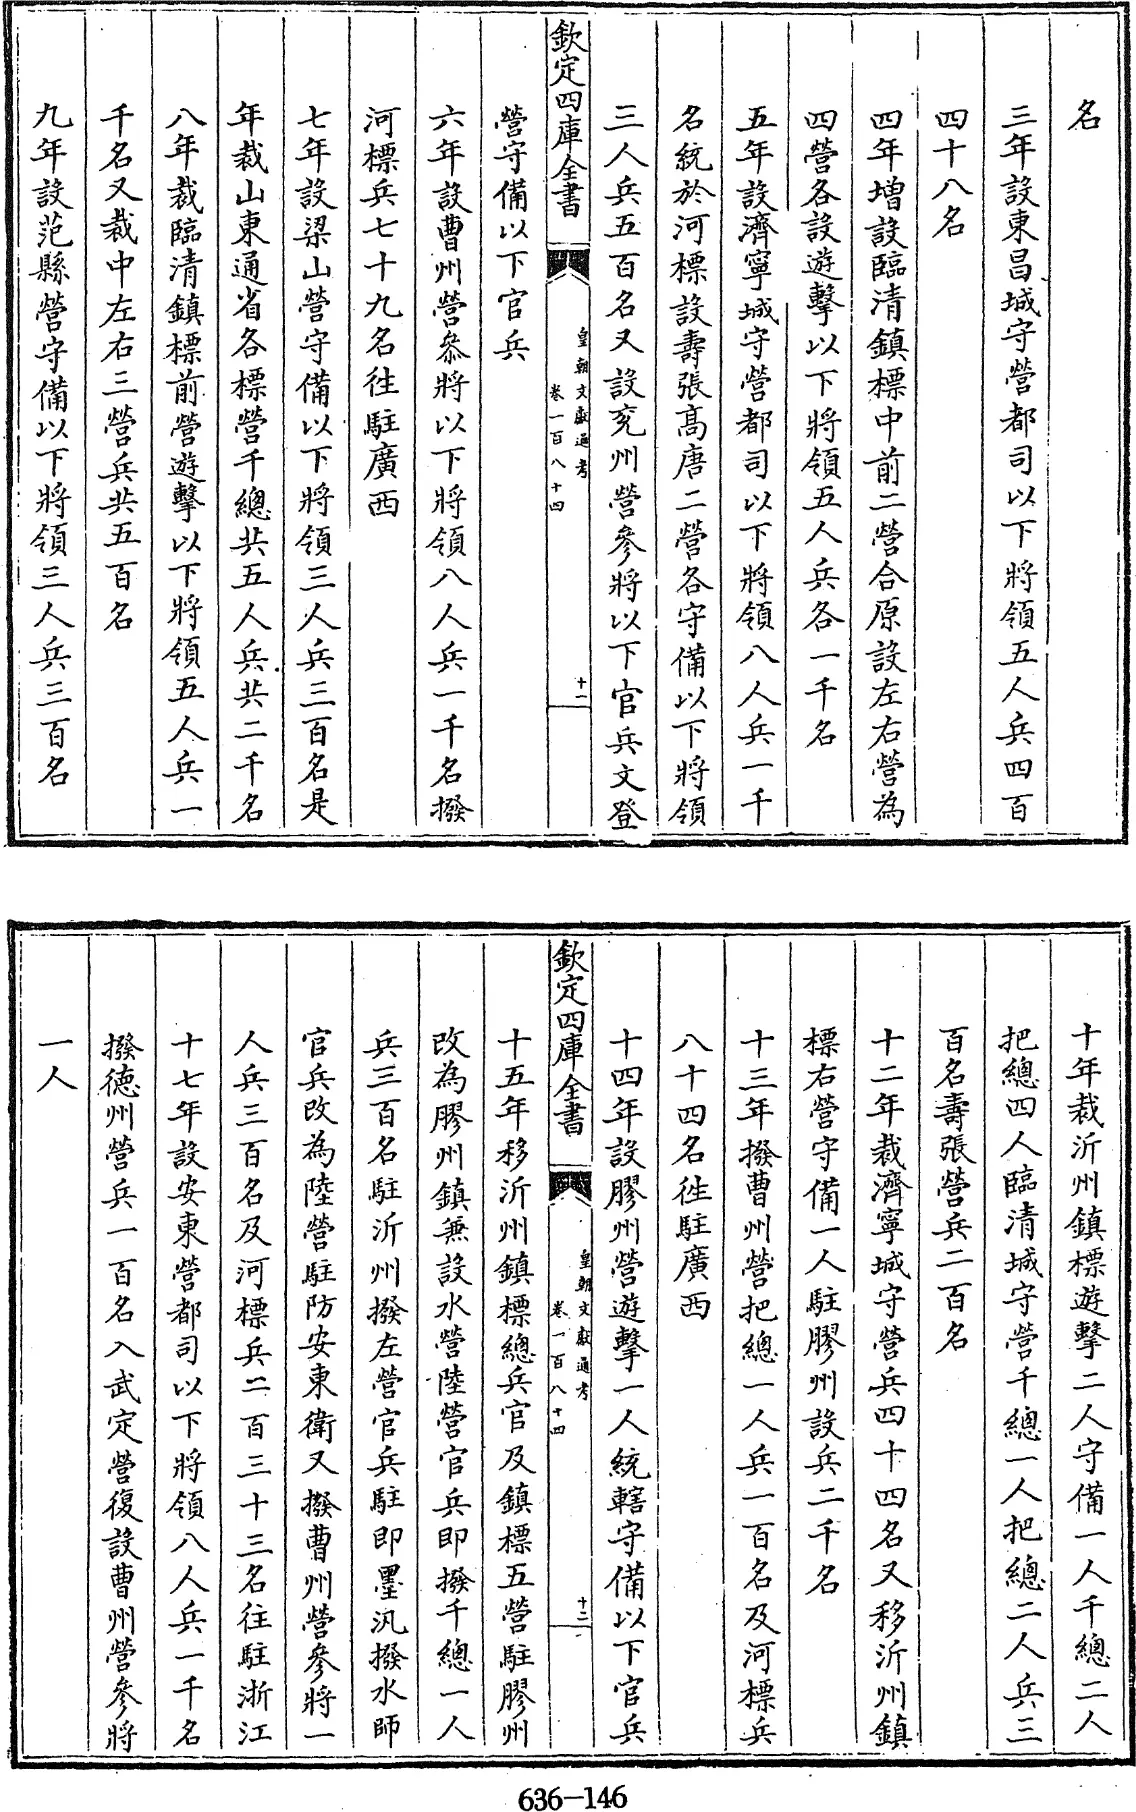 名
三年設東昌城守營都司以下將領五人兵四百
四十八名
四年増設臨清鎮標中前二營合原設左右營為
四營各設遊擊以下將領五人兵各一千名
五年設濟寧城守營都司以下將領八人兵一千
名統於河標設壽張髙唐二營各守備以下將領
三人兵五百名又設兖州營參將以下官兵文登
欽定四庫全書
皇朝文獻通考
卷一百八十四
十一
營守備以下官兵
六年設曹州營叅將以下將領八人兵一千名撥
河標兵七十九名徃駐廣西
七年設梁山營守備以下將領三人兵三百名是
年裁山東通省各標營千總共五人兵共二千名
八年裁臨清鎮標前營遊擊以下將領五人兵一
千名又裁中左右三營兵共五百名
九年設范縣營守備以下將領三人兵三百名
十年裁沂州鎮標遊擊二人守備一人千總二人
把總四人臨清城守營千總一人把總二人兵三
百名壽張營兵二百名
十二年裁濟寧城守營兵四十四名又移沂州鎮
標右營守備一人駐膠州設兵二千名
十三年撥曹州營把總一人兵一百名及河標兵
八十四名徃駐廣西
十四年設膠州營遊擊一人統轄守備以下官兵
欽定四庫全書
皇朝文獻通考
卷一百八十四
十二
十五年移沂州鎮標總兵官及鎮標五營駐膠州
改為膠州鎮兼設水營陸營官兵即撥千總一人
兵三百名駐沂州撥左營官兵駐即墨汛撥水師
官兵改為陸營駐防安東衛又撥曹州營參將一
人兵三百名及河標兵二百三十三名往駐浙江
十七年設安東營都司以下將領八人兵一千名
撥德州營兵一百名入武定營復設曹州營參將
一人
636-146